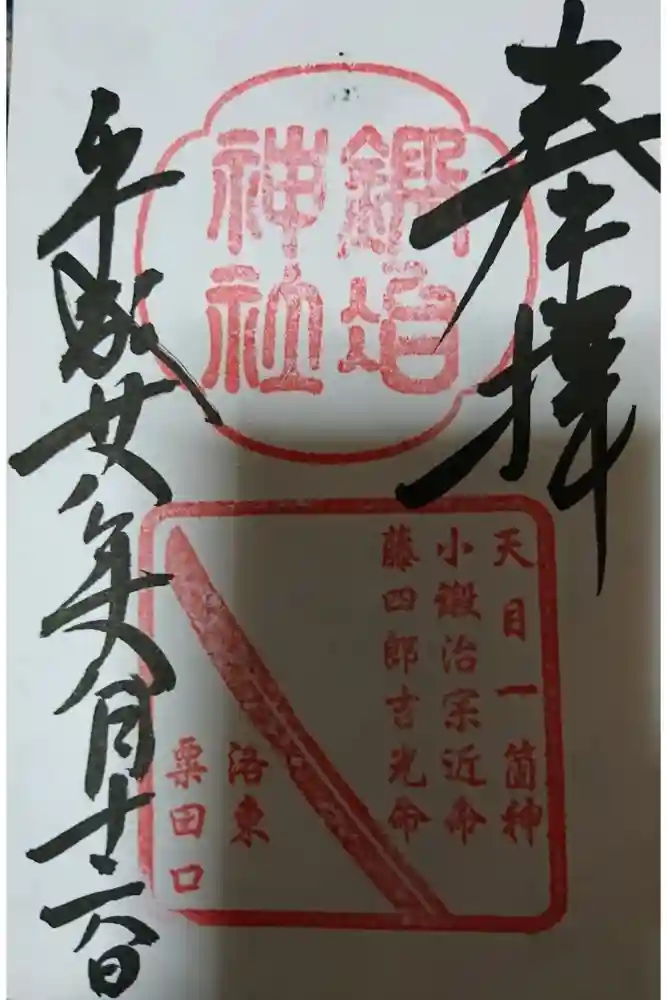 奉拝
鍛冶
神社
天目一箇神
小鍛治宗近命
藤四郎吉光命
洛東
粟田口
平成廿八年六月十二日